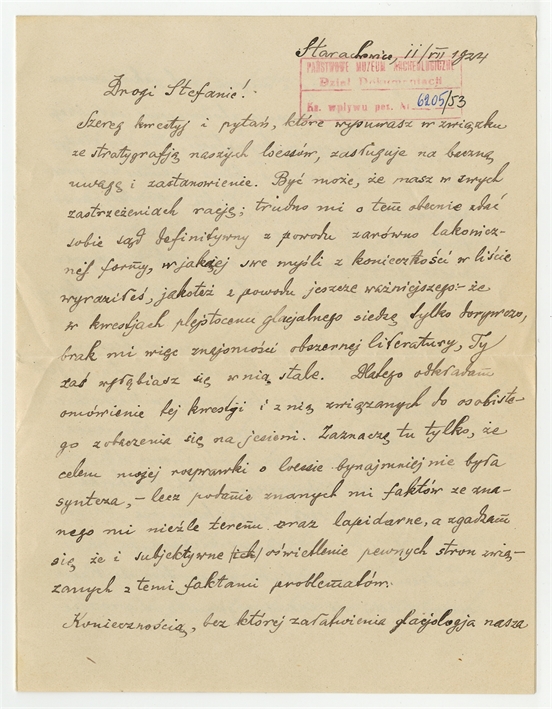 Starachowice, 11/VII 1924
PAŃSTWOWE MUZEUM ARCHEOLOGICZNE
Dział Dokumentacji
Ks. wpływu poz. Nr 6205/53
Drogi Stefanie!
Szereg kwestyj i pytań, które wysuwasz w związku
ze stratygrafją naszych loessów, zasługuje na baczną
uwagę i zastanowienie. Być może, że masz w swych
zastrzeżeniach rację; trudno mi o tem obecnie zdać
sobie sąd definitywny z powodu zarówno lakonicz-
nej formy, w jakiej swe myśli z konieczności w liście
wyraziłeś, jakoteż z powodu jeszcze ważniejszego:- że
w kwestjach plejstocenu glacjalnego siedzę tylko dorywczo,
brak mi więc znajomości obszernej literatury, Ty
zaś wgłębiasz się w nią stale. Dlatego odkładam
omówienie tej kwestji i z nią związanych do osobiste-
go zobaczenia się na jesieni. Zaznaczę tu tylko, że
celem mojej rozprawki o loessie bynajmniej nie była
synteza, – lecz podanie znanych mi faktów ze zna-
nego mi nieźle terenu oraz lapidarne, a zgadzam
się że i subjektywne (ich) oświetlenie pewnych stron zwią-
zanych z temi faktami problematów.
Koniecznością, bez której załatwienia glacjologja nasza